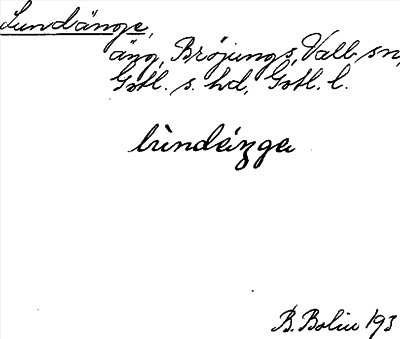 Lundänge,
äng, Bröjungs, Vall sn,
Gotl. s. hd, Gotl. l.
lùndèingɐ
B. Bolin 193